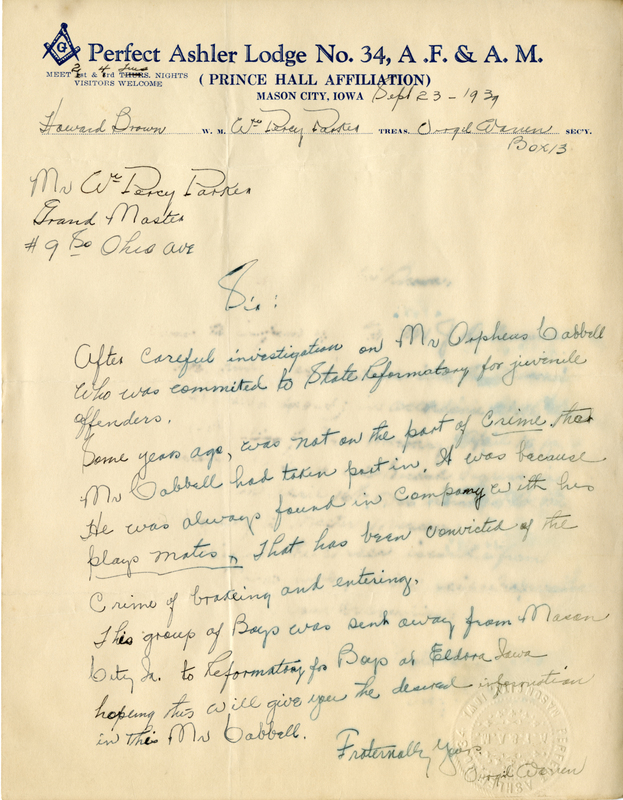 Perfect Ashler Lodge No. 34, A .F. & A. M.
MEET 1st & 3rd THURS. NIGHTS
2 4
VISITORS WELCOME
( PRINCE HALL AFFILIATION)
MASON CITY, IOWA Sept 23 - 1939
Howard Brown W. M. Wm Percy Parker TREAS. Virgil Warren SEC'Y.
Box 13
Mr Wm Percy Parker
Grand Master
# 9 So Ohio ave
Sir:
After careful investigation on Mr Orpheus Cabbell
who was commited to State Reformatory for juvenile
offenders.
Some years ago, was not on the part of Crime that
Mr Cabbell had taken part in. It was because
He was always found in company with his
plays mates, That has been convicted of the
Crime of brakeing and entering.
This group of Boys was sent away from Mason
City Ia. to Reformatory for Boys at Eldora Iowa
hopeing this will give you the desired information
in this Mr Cabbell.
Fraternally Yours
Virgil Warren